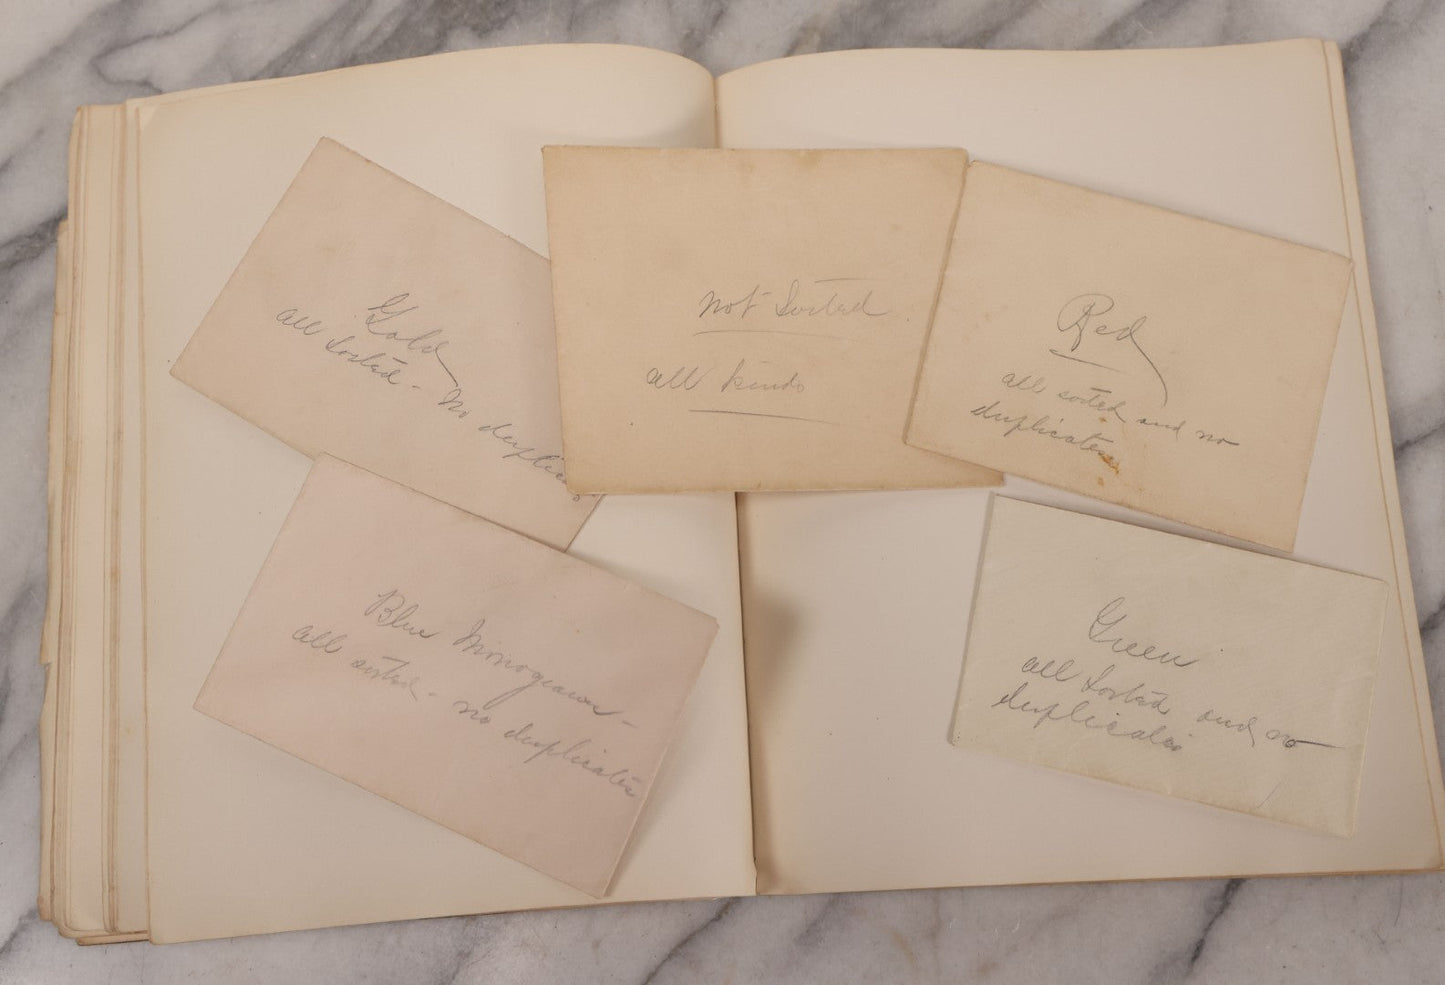 Gold
all Sorted - No duplicates
not Sorted
all kinds
Red
all sorted and no
duplicates
Blue Monogram -
all sorted - no duplicates
Green
all Sorted and no
duplicates